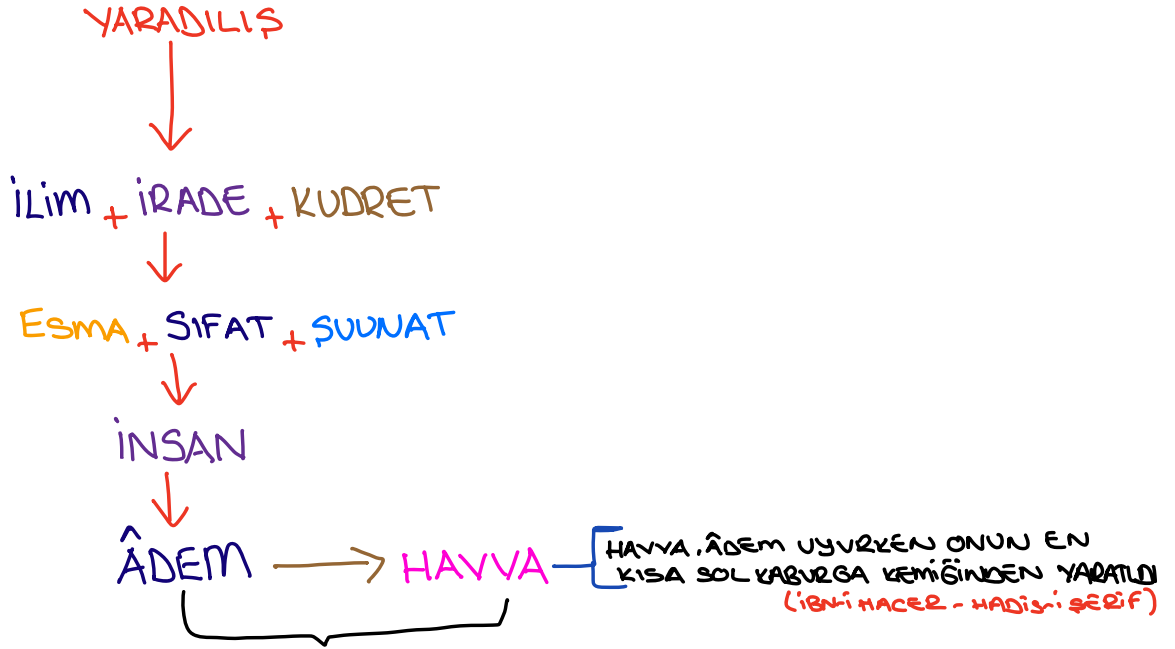 YARADILIŞ
İLİM + İRADE + KUDRET
ESMA + SIFAT + ŞUUNAT
İNSAN
ÂDEM HAVVA
HAVVA, ÂDEM UYURKEN ONUN EN
KISA SOL KABURGA KEMİĞİNDEN YARATILDI
(İBN-İ HACER - HADİS-İ ŞERİF)